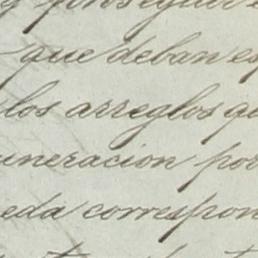 que deban es
los arreglos qu
uneracion por
eda correspon